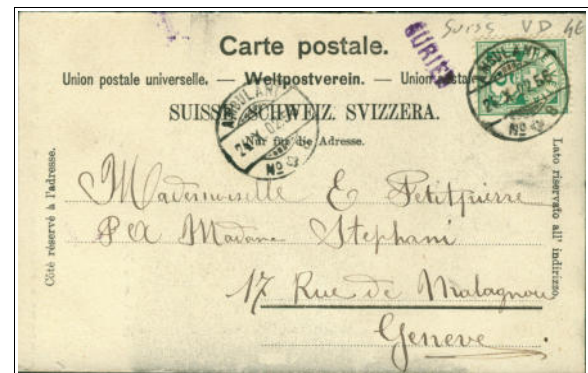 Suisse VD
Carte postale.
Union postale universelle. — Weltpostverein. — Union postale
SUISSE. SCHWEIZ. SVIZZERA.
Nur für die Adresse.
AMBULANT
24 X 02
No
AMBULANT
24 X 02
No
AURIGE
Côté réservé à l'adresse.
Lato riservato all' indirizzo.
Mademoiselle E Petitpierre
Madame Stephani
17 Rue de Malagnou
Geneve